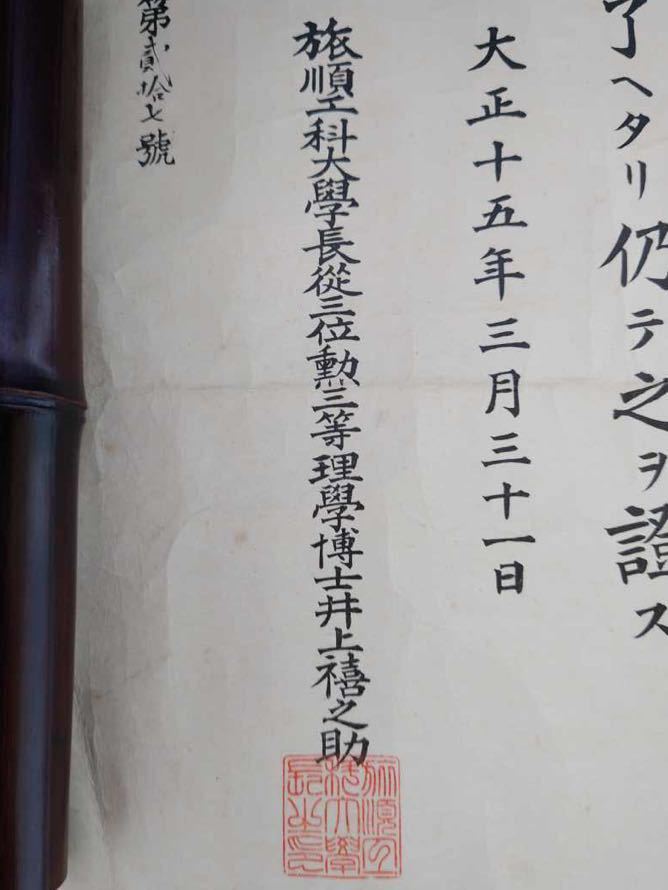 了ヘタリ仍テ之ヲ證ス
大正十五年三月三十一日
旅順工科大學長從三位勲三等理學博士井上禧之助
第貳拾七號
旅順工
科大學
長之印